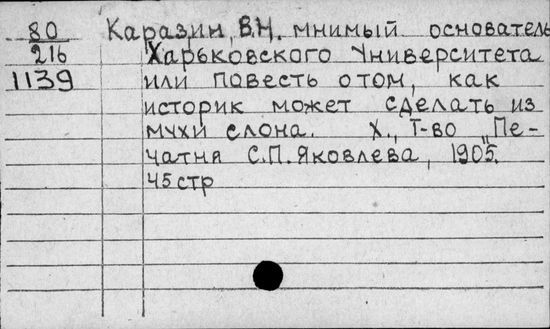 80 Каразин, В.Н. мнимый основатель
216 Харьковского Университета
1139 или повесть о том, как
историк может сделать из
мухи слона. Х., Т-во „Пе-
чатня С.П. Яковлева, 1905.
45 стр